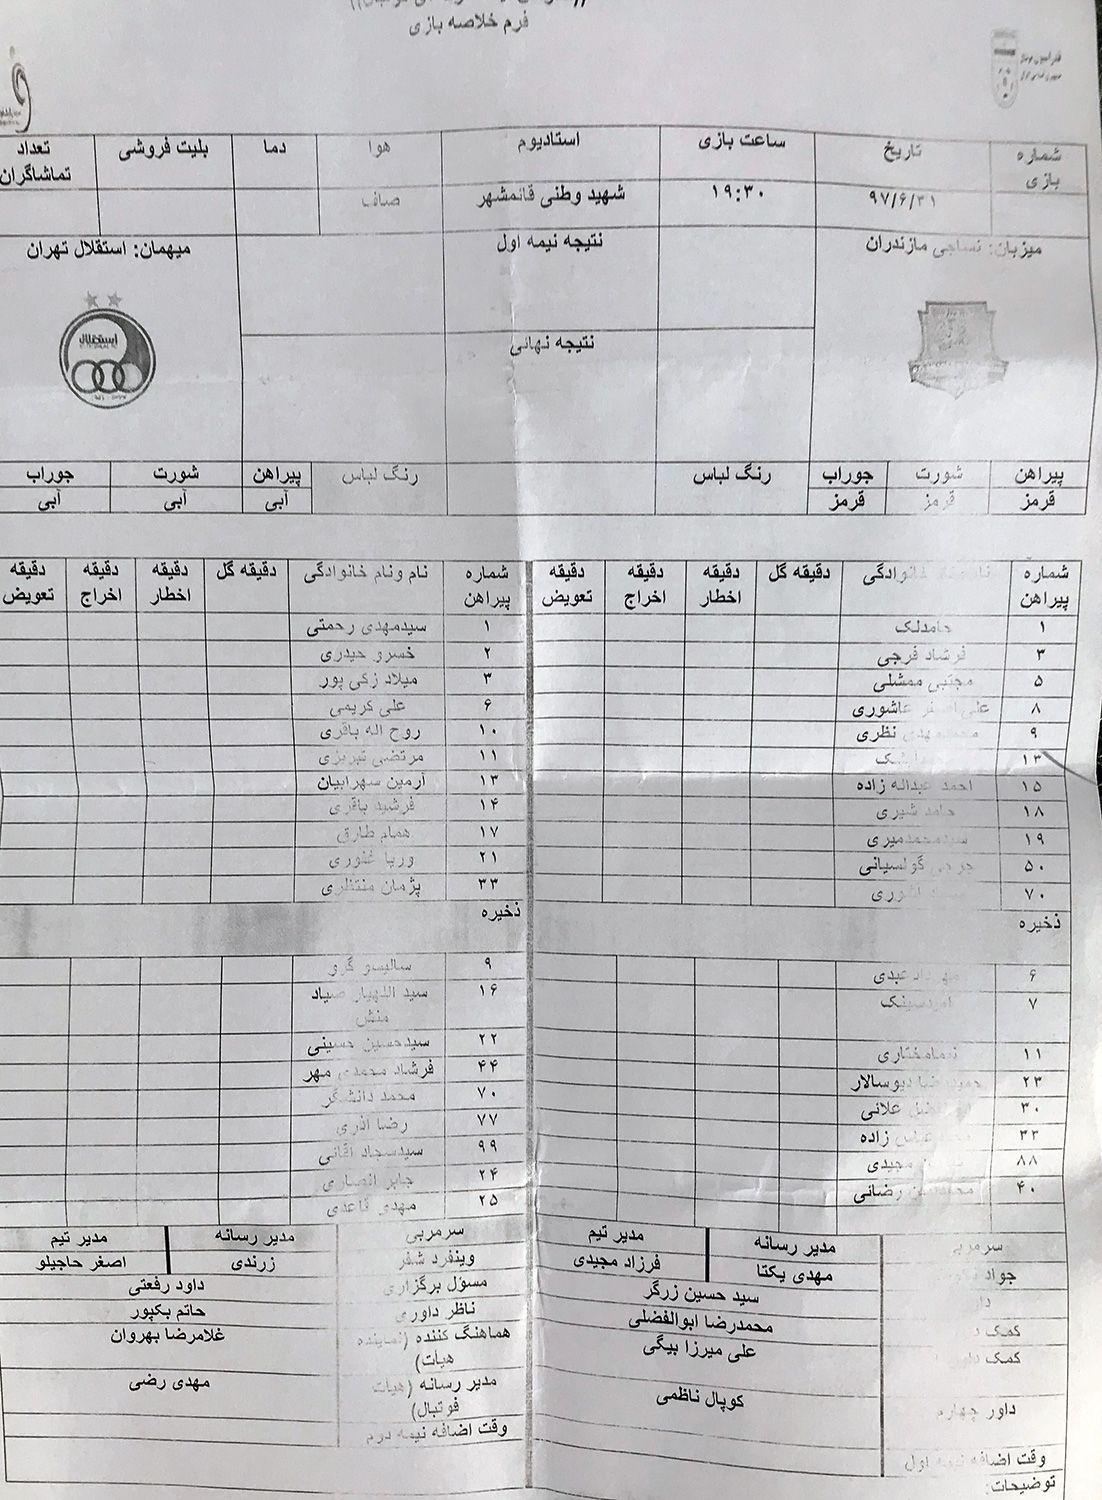 فرم خلاصه بازی
شماره بازی تاریخ ساعت بازی استادیوم هوا دما بلیت فروشی تعداد تماشاگران
۹۷/۶/۳۱ ۱۹:۳۰ شهید وطنی قائمشهر صاف
میزبان: نساجی مازندران نتیجه نیمه اول میهمان: استقلال تهران
نتیجه نهائی
استقلال
پیراهن شورت جوراب رنگ لباس رنگ لباس پیراهن شورت جوراب
قرمز قرمز قرمز آبی آبی آبی
شماره پیراهن خانوادگی دقیقه گل دقیقه اخطار دقیقه اخراج دقیقه تعویض شماره پیراهن نام ونام خانوادگی دقیقه گل دقیقه اخطار دقیقه اخراج دقیقه تعویض
۱ حامدلک ۱ سیدمهدی رحمتی
۳ فرشاد فرجی ۲ خسرو حیدری
۵ مجتبی ممشلی ۳ میلاد زکی پور
۸ علی اصغر عاشوری ۶ علی کریمی
۹ محمدمهدی نظری ۱۰ روح اله باقری
۱۳ ۱۱ مرتضی تبریزی
۱۵ احمد عبداله زاده ۱۳ آرمین سهرابیان
۱۸ حامد شیری ۱۴ فرشید باقری
۱۹ سیدمحمدمیری ۱۷ همام طارق
۵۰ جرجی گولسیانی ۲۱ وریا غفوری
۷۰ ۳۳ پژمان منتظری
ذخیره ذخیره
۶ عبدی ۹ سالیسو گرو
۷ ۱۶ سید اللهیار صیاد منش
۲۲ سیدحسین حسینی
۱۱ نیمامختاری ۴۴ فرشاد محمدی مهر
۲۳ حمیدرضا دیوسالار ۷۰ محمد دانشگر
۳۰ علائی ۷۷ رضا آذری
۳۳ عباس زاده ۹۹ سیدسجاد آقائی
۸۸ مجیدی ۲۴ جابر انصاری
۴۰ رضائی ۲۵ مهدی قاعدی
سرمربی مدیر رسانه مدیر تیم سرمربی مدیر رسانه مدیر تیم
جواد مهدی یکتا فرزاد مجیدی وینفرد شفر زرندی اصغر حاجیلو
سید حسین زرگر مسؤل برگزاری داود رفعتی
کمک محمدرضا ابوالفضلی ناظر داوری حاتم بکپور
کمک علی میرزا بیگی هماهنگ کننده (نماینده هیأت) غلامرضا بهروان
داور چهارم کوپال ناظمی مدیر رسانه (هیات فوتبال) مهدی رضی
وقت اضافه نیمه اول وقت اضافه نیمه دوم
توضیحات: